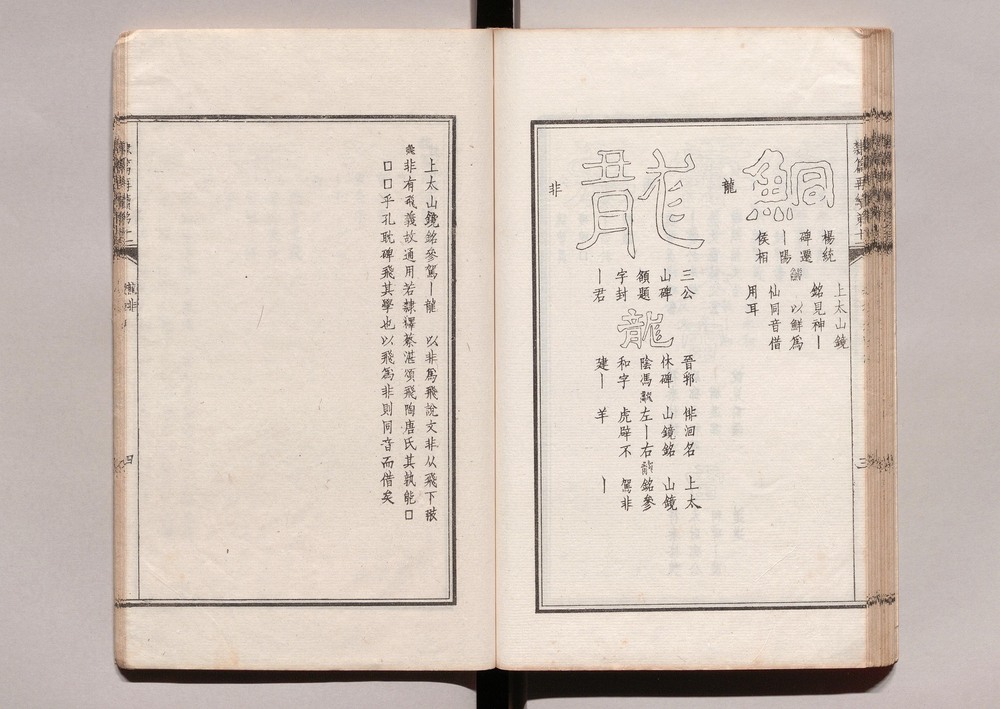 鮦
楊統
碑還
｜陽
侯相
鮮
上太山鏡
銘見神｜
以鮮爲
仙同音借
用耳
龍
龍
三公
山碑
額題
字封
｜君
龍
晉邪
休碑
陰馮
和字
建｜
俳洄名
山鏡銘
左｜右
虎辟不
羊
龍
上太
山鏡
銘參
駕非
｜
非
上太山鏡銘參駕｜龍 以非爲飛說文非从飛下翄
非有飛義故通用若隸釋蔡湛頌飛陶唐氏其孰能口
口口乎孔耽碑飛其學也以飛爲非則同音而借矣
四